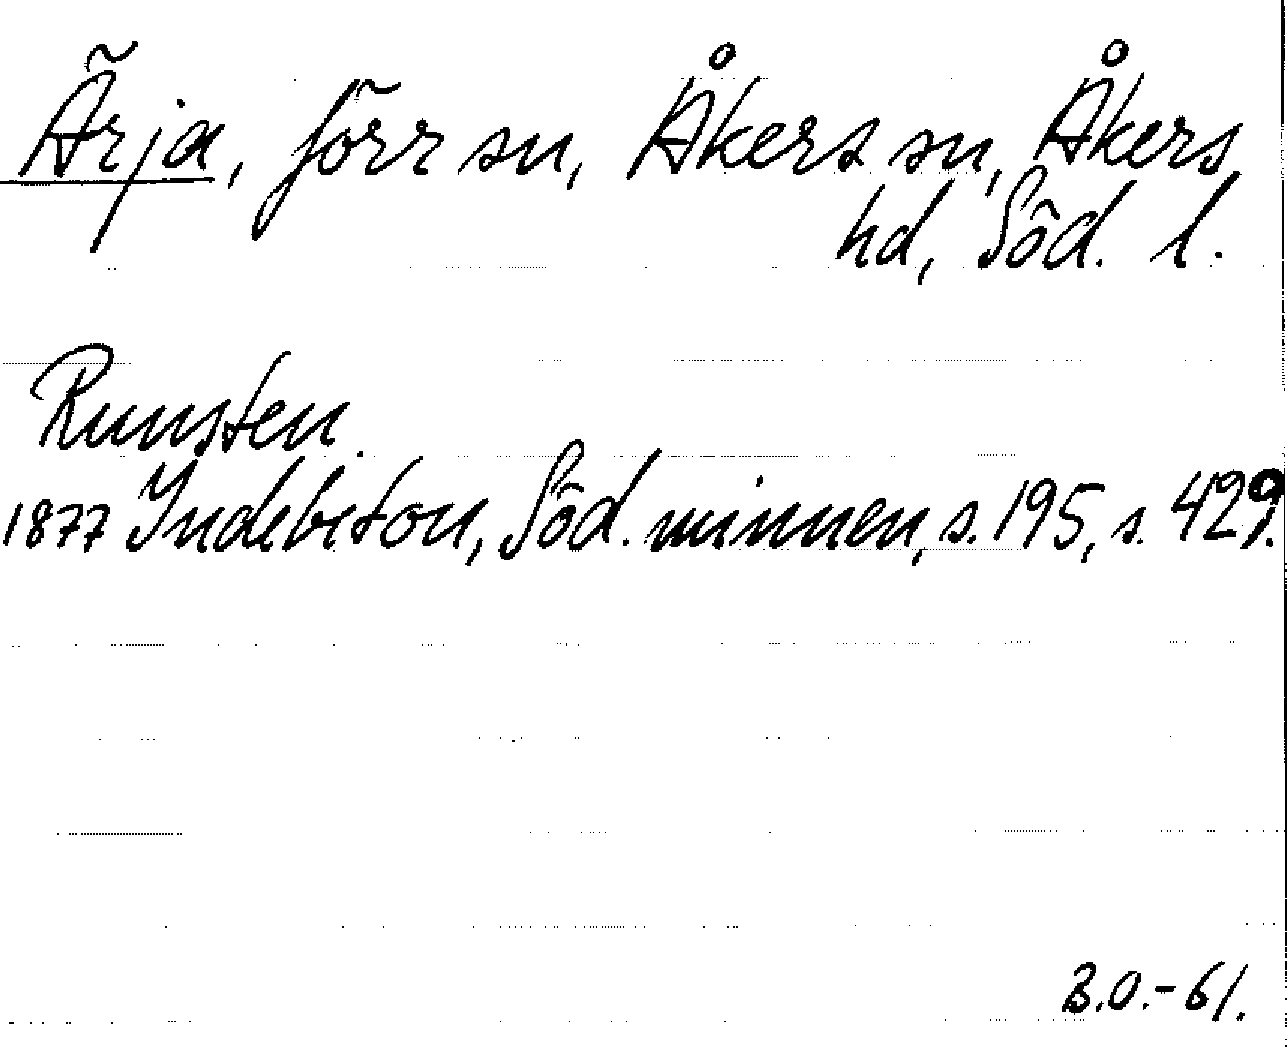 Ärja, förr sn, Åkers sn, Åkers
hd, Söd. l.
Runsten.
1877 Indebetou, Söd. minnen, s. 195, s. 429.
B.O.-61.